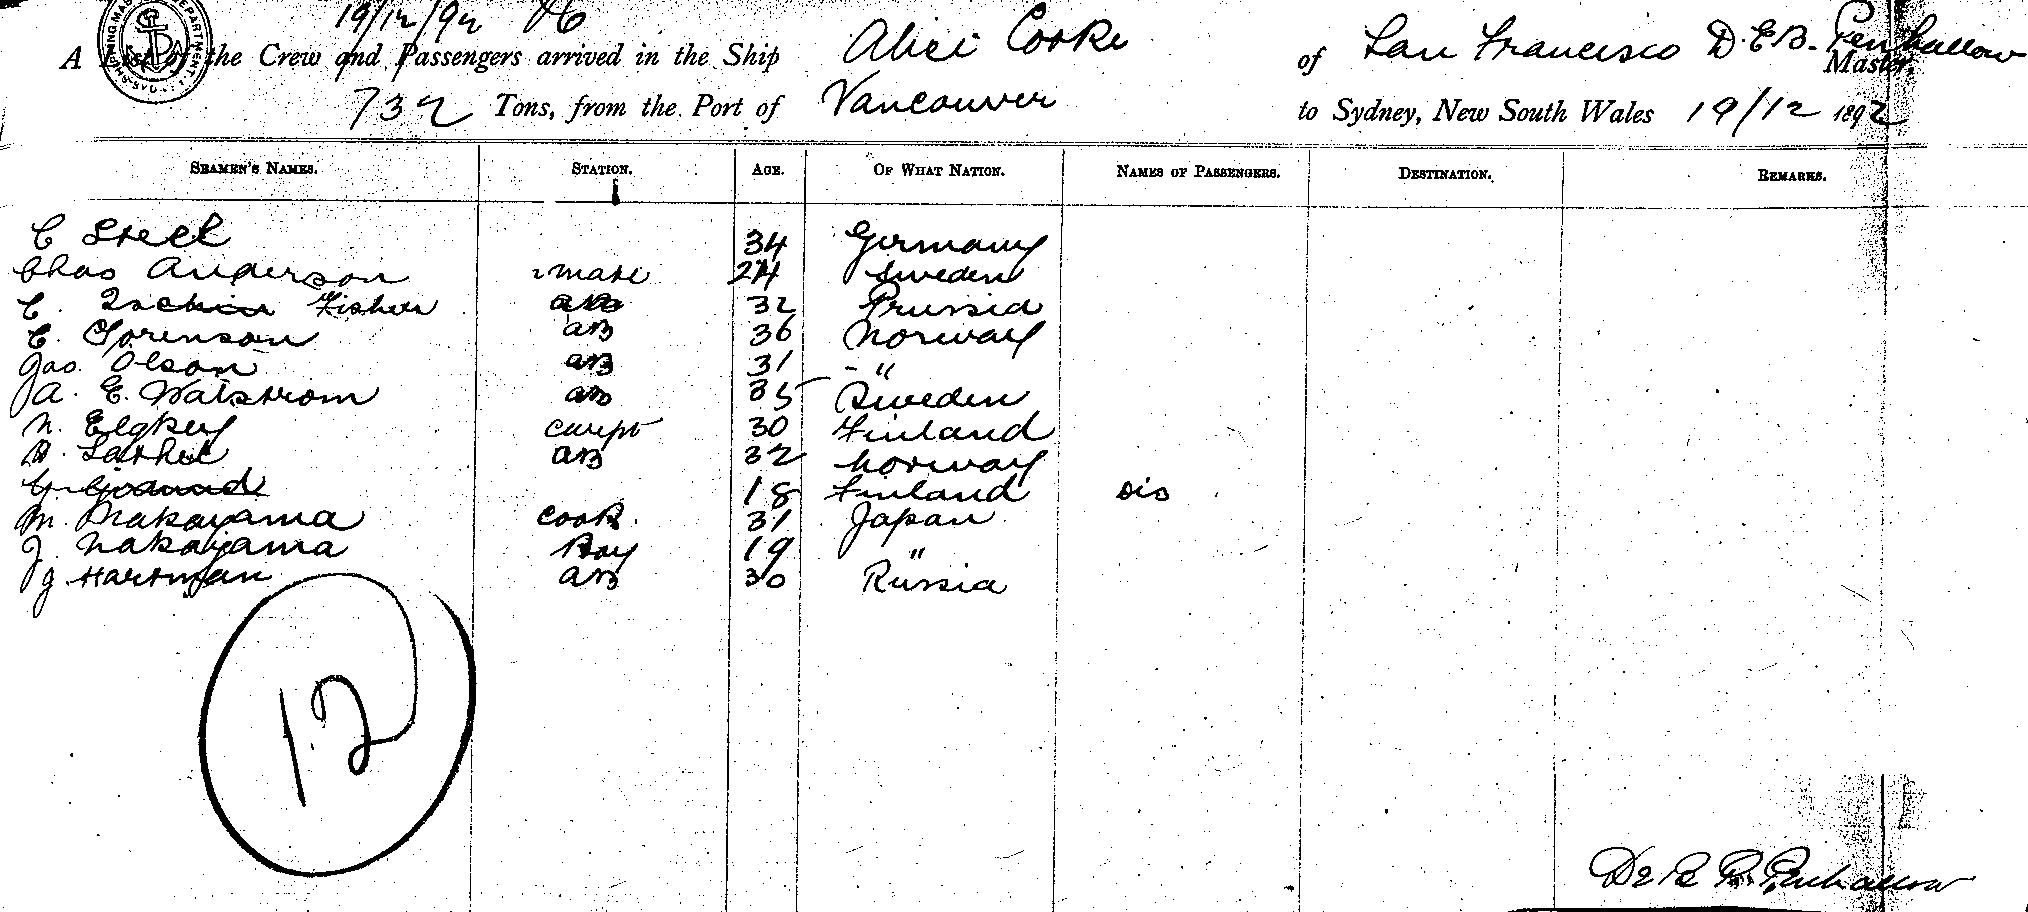 19/12/92
A List of the Crew and Passengers arrived in the Ship Alice Cooke of San Francisco D.E.B. Penhallow Master,
732 Tons, from the Port of Vancouver to Sydney, New South Wales 19/12 1892
SEAMEN'S NAMES. STATION. AGE. OF WHAT NATION. NAMES OF PASSENGERS. DESTINATION. REMARKS.
C Steel 34 Germany
Chas Anderson 2 mate 24 Sweden
C. Fisher AB 32 Prussia
C. Sorenson AB 36 Norway
Jas. Olson AB 31 "
A. E. Walstrom AB 35 Sweden
N. Elgkey carpt 30 Finland
32 AB Norway
18 Finland Dis
M. Nakayama Cook. 31 Japan
J. Nakayama Boy 19 "
J Hartman AB 30 Russia
12
Penhallow